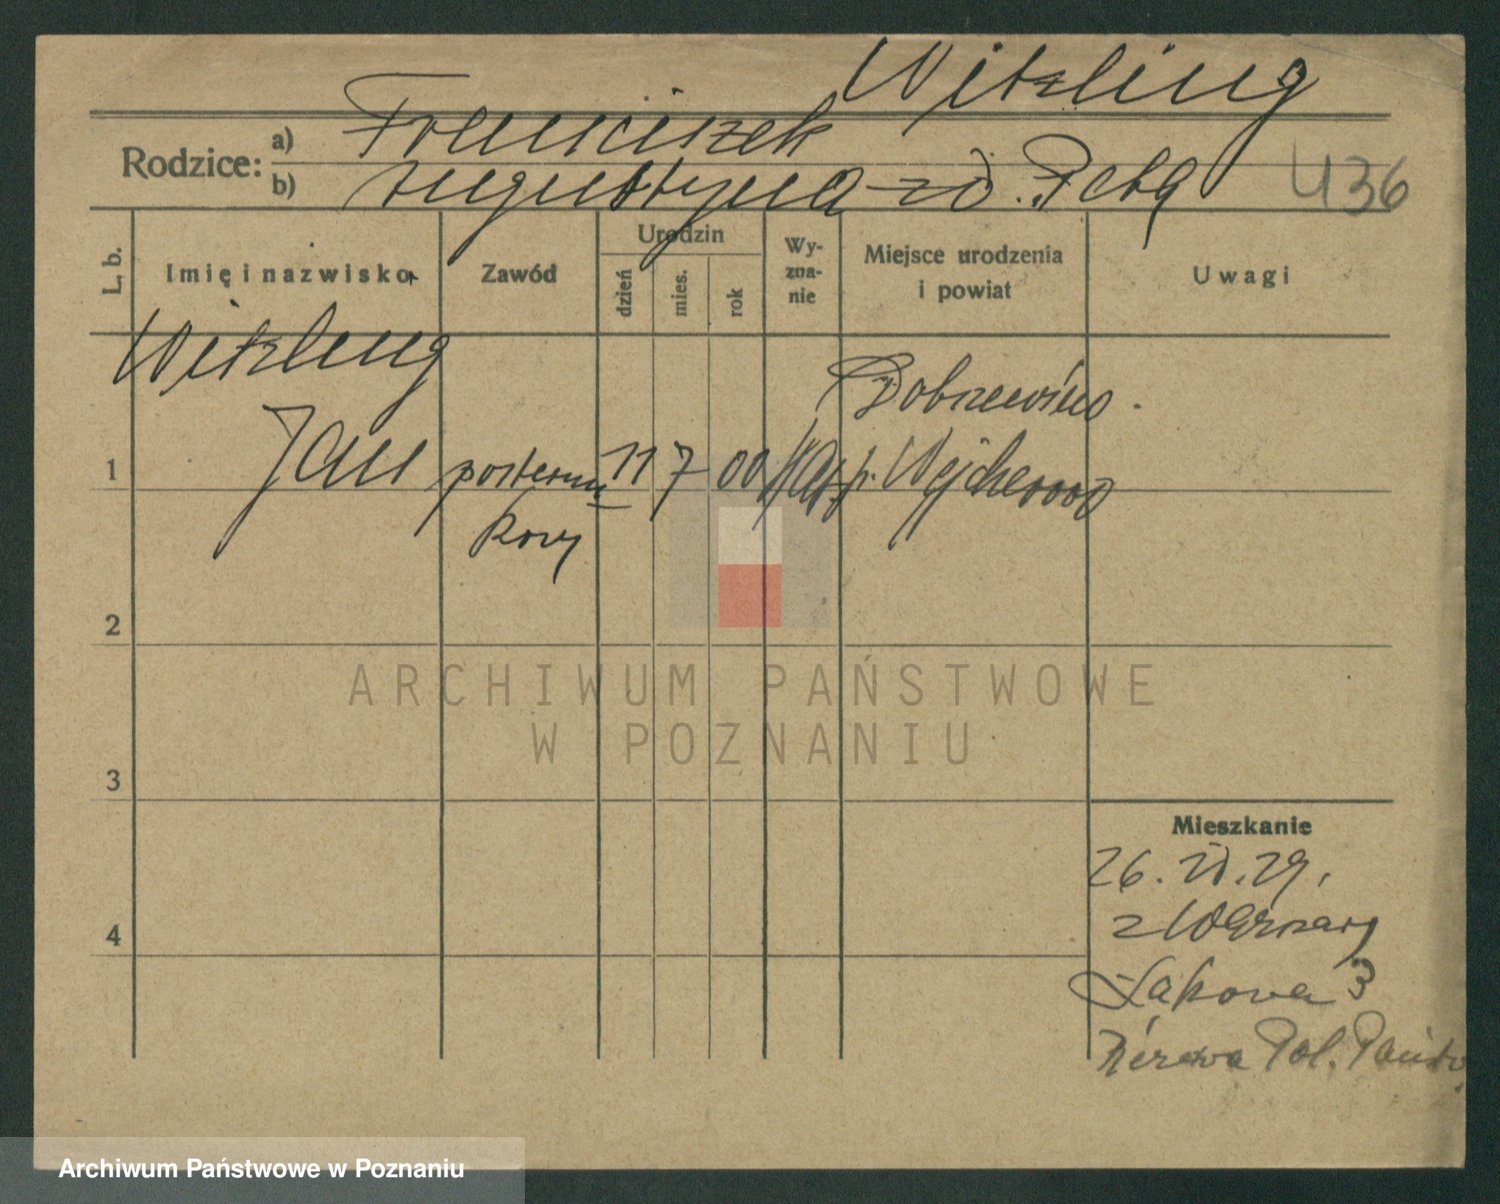 Witzling
Rodzice: a) Franciszek
b) Augustyna zd. Pełka
436
L. b.
Imię i nazwisko
Zawód
Urodzin
dzień
mies.
rok
Wy-
zna-
nie
Miejsce urodzenia
i powiat
Uwagi
Witzling
Jan
posterun
kowy
11 7 00
Dobrzewino
p. Wejherowo
1
2
3
4
Mieszkanie
26. 29.
z Warszawy
Łąkowa 3
Pol. Państw.
ARCHIWUM PAŃSTWOWE
W POZNANIU
Archiwum Państwowe w Poznaniu